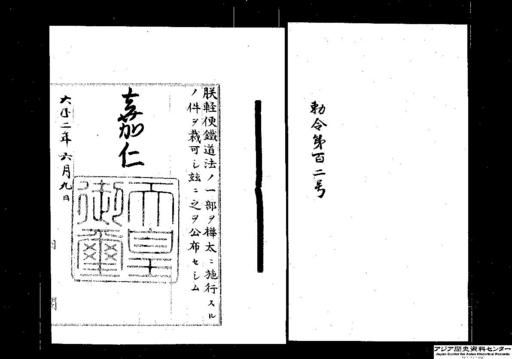 勅令第百二号
朕軽便鐵道法ノ一部ヲ樺太ニ施行スル
ノ件ヲ裁可シ玆ニ之ヲ公布セシム
嘉仁
天皇御璽
大正二年六月九日
アジア歴史資料センター
Japan Center for Asian Historical Records